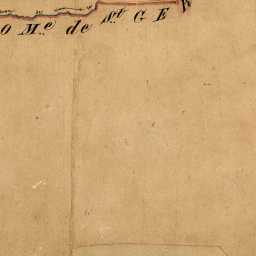 O M.e de St. GE